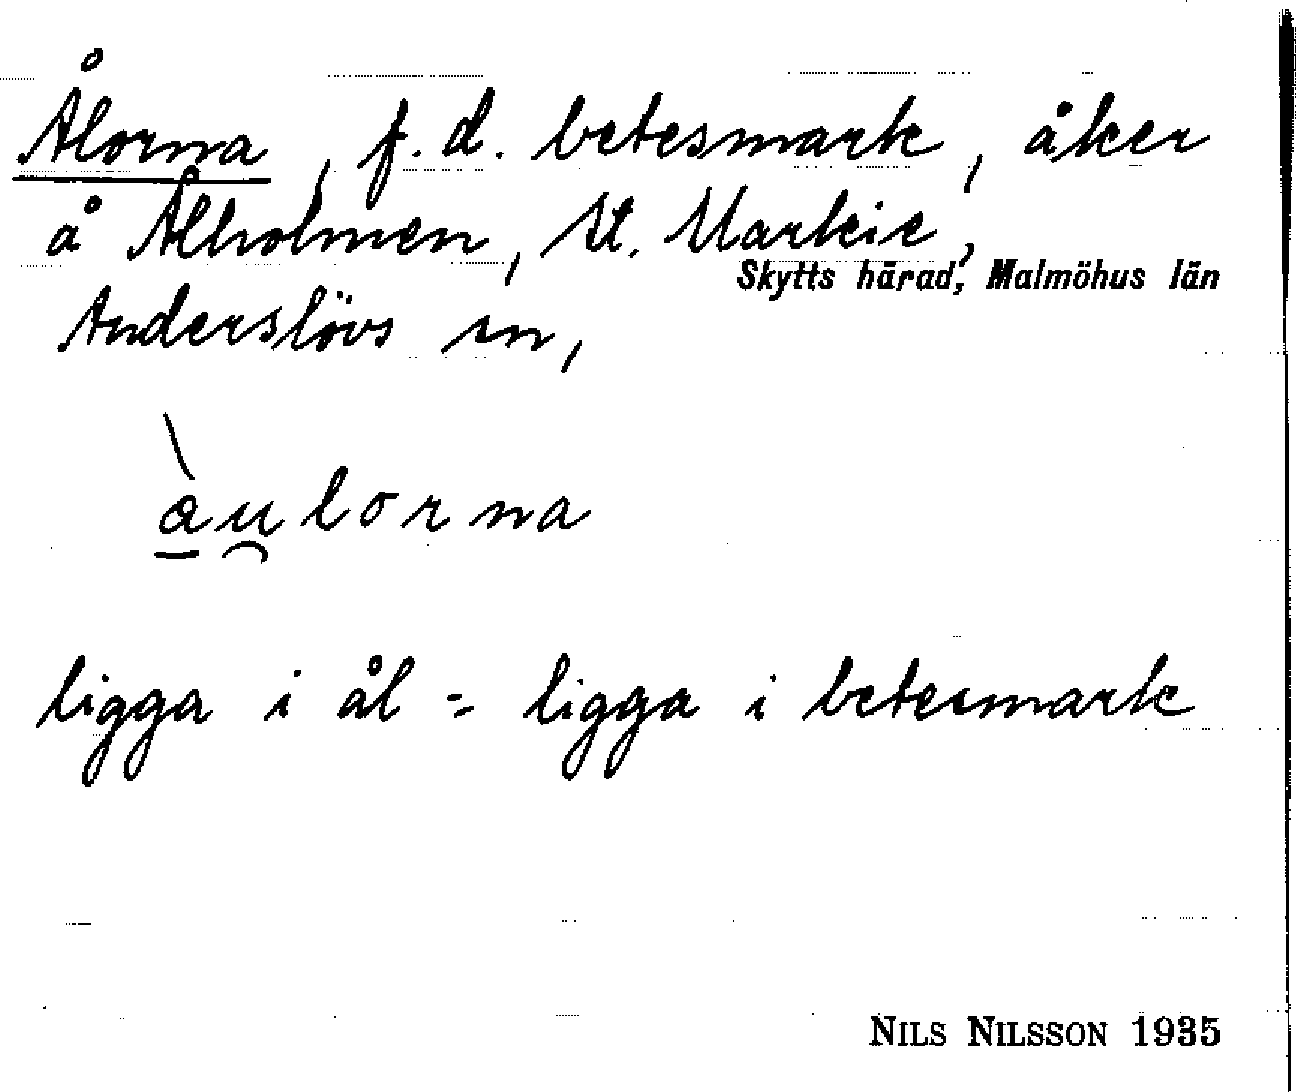 Ålorna, f.d. betesmark, åker
å Ålholmen, St. Markie,
Skytts härad, Malmöhus län
Anderslövs sn,
àulorna
ligga i ål = ligga i betesmark
NILS NILSSON 1935